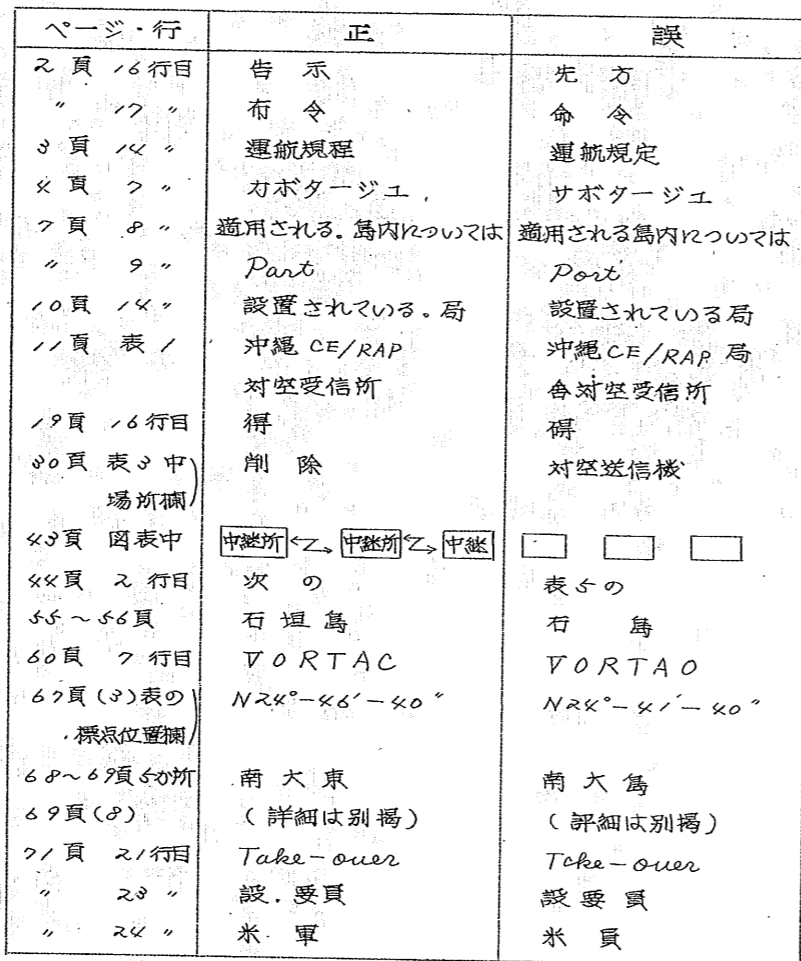 ページ・行 正 誤
2頁 16行目 告示 先方
〃 17〃 布令 命令
3頁 14〃 運航規程 運航規定
4頁 7〃 カボタージユ サボタージユ
7頁 8〃 適用される。島内については 適用される島内については
〃 9〃 Part Port
10頁 14〃 設置されている。局 設置されている局
11頁 表1 沖縄CE/RAP 沖縄CE/RAP局
対空受信所 各対空受信所
19頁 16行目 得 碍
30頁 表3中 削除 対空送信機
場所欄
43頁 図表中 中継所 中継所 中継
44頁 2行目 次の 表5の
55~56頁 石垣島 石 島
60頁 7行目 VORTAC VORTAO
67頁(3)表の N24°-46′-40″ N24°-41′-40″
標点位置欄
68~69頁5か所 南大東 南大島
69頁(8) (詳細は別掲) (評細は別掲)
71頁 21行目 Take-over Tcke-over
〃 23〃 設.要員 設要員
〃 24〃 米軍 米員